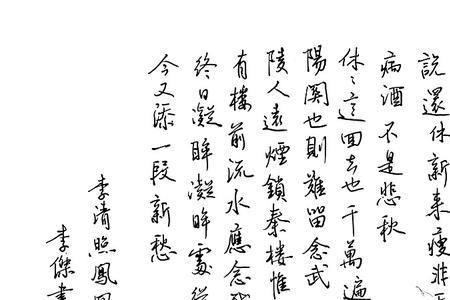 説還休新来瘦非
病酒不是悲秋
休〻這回去也千萬遍
陽関也則難留念武
陵人遠煙鎖秦楼惟
有楼前流水應念我
終日凝眸凝眸處從
今又添一段新愁
李清照鳳
李傑書